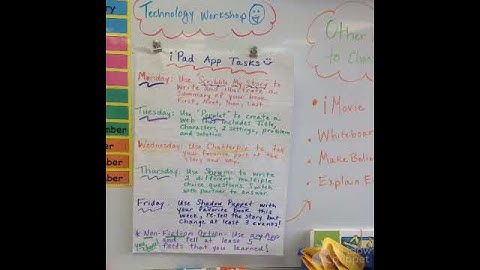 Technology Workshop
iPad App Tasks
Monday: Use Scribble My Story to
write and illustrate a
summary of your book.
First, Next, Then, Last
Tuesday: Use "Popplet" to create a
web that includes Title,
Characters, 2 settings, problem
and solution
Wednesday: Use Chatterpix to tell
your favorite part of the
story and why.
Thursday: Use to write
2 different multiple
choice questions. Switch
with partner to answer.
Friday: Use Shadow Puppet with
your favorite book this
week, re-tell the story but
change at least 3 events!
* Non-Fiction Option- Use any App
and tell at least 5
facts that you learned!
Other
to
• iMovie
• Whiteboard
• Make
• Explain E